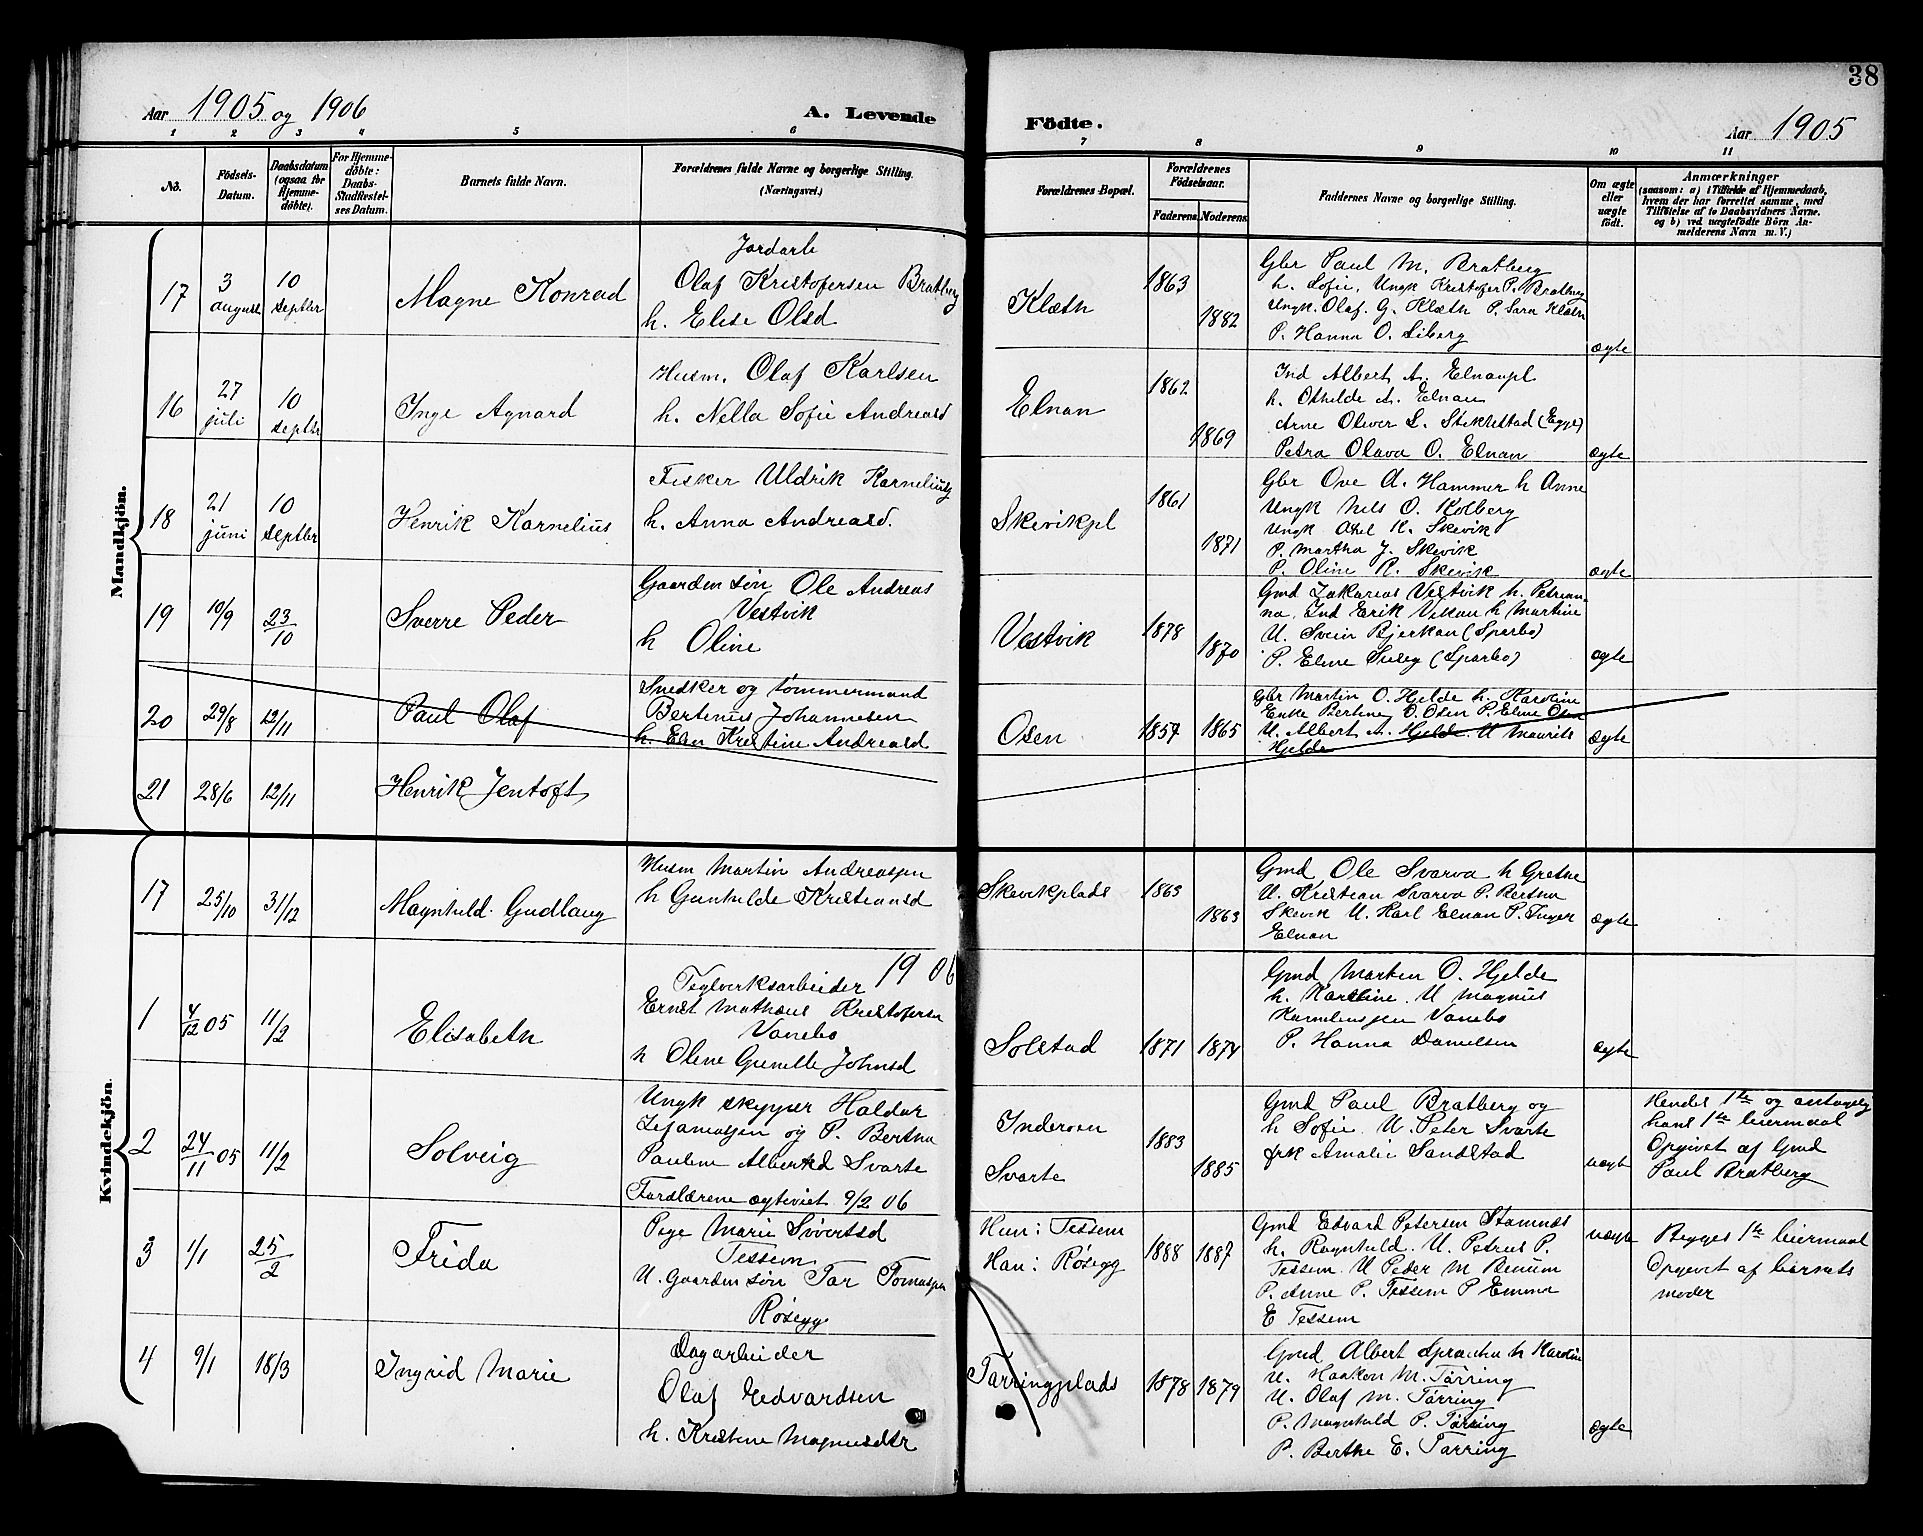 38
Aar 1905 og 1906
A. Levende
Födte.
Aar 1905
1 2 3 4 5 6 7 8 9 10 11
No.
Födsels-
Datum.
Daabsdatum
(ogsaa for
Hjemme-
döbte).
For Hjemme-
döbte:
Daabs-
Stadfæstel-
ses Datum.
Barnets fulde Navn.
Forældrenes fulde Navne og borgerlige Stilling.
(Næringsvei.)
Forældrenes Bopæl.
Forældrenes
Födselsaar.
Faderens.
Moderens.
Faddernes Navne og borgerlige Stilling.
Om ægte
eller
uægte
födt.
Anmærkninger
(saasom: a) i Tilfælde af Hjemmedaab,
hvem der har forrettet samme, med
Tilföielse af to Daabsvidners Navne.
og b) ved uægtefödte Börn An-
melderens Navn m. V.)
Mandkjön.
17
3
august
10
septbr
Magne Konrad
Jordarb
Olaf Kristofersen Bratberg
h. Elise Olsd
Klæth
1863
1882
Gbr Paul M. Bratberg
h. Sofie, Ungk Kristofer P. Bratberg
Ungk. Olaf. G. Klæth P. Sara Klæth
P. Hanna O. Liberg
ægte
16
27
juli
10
septbr
Inge Agnard
Husm. Olaf Karlsen
h. Nella Sofie Andreasd
Elnan
1862
1869
Ind Albert A. Elnanpl
h. Othilde A. Elnan
Arne Oliver L. Stiklestad (Egge)
Petra Olava O. Elnan
ægte
18
21
juni
10
septbr
Henrik Kornelius
Fisker Uldrik Korneliuss
h. Anna Andreasd.
Skevikpl
1861
1871
Gbr Ove A. Hammer h Anne
Ungk Nils O. Kolberg
Ungk Axel K. Skevik
P. Martha J. Skevik
P. Oline R. Skevik
ægte
19
10/9
23/10
Sverre Peder
Gaardm søn Ole Andreas
Vestvik
h Oline
Vestvik
1878
1870
Gmd Zakarias Vestvik h. Petrian-
na. Ind Erik Vikan h Martine
U. Svein Bjerkan (Sparbo)
P. Eline (Sparbo)
ægte
20
29/8
12/11
Paul Olaf
Snedker og tømmermand
Bertinus Johannesen
h. Elen Kristine Andreasd
Osen
1857
1865
Gbr Martin O. Hjelde h. Karoline
Enke Bertine O. Osen P. Eline Osen
U. Albert A. Hjelde. U Maurits
Hjelde
ægte
21
28/6
12/11
Henrik Jentoft
Kvindekjön.
17
25/10
31/12
Magnhild Gudlaug
Husm Martin Andreassen
h Gunhilde Kristiansd
Skevikplads
1863
1863
Gmd Ole Svarva h Grethe
U. Kristian Svarva P. Bertha
Skevik U. Karl Elnan P. Inger
Elnan
ægte
1906
1
4/12 05
11/2
Elisabeth
Teglverksarbeider
Ernst Mathæus Kristofersen
Vanebo
h Oline Gunelle Johnsd
Solstad
1871
1874
Gmd Martin O. Hjelde
h. Karoline. U Magnus
Korneliussen Vanebo
P. Hanna Danielsen
ægte
2
24/11 05
11/2
Solveig
Ungk skypper Haldor
Zefaniassen og P. Bertha
Pauline Albertsd Svarte
Forældrene ægteviet 9/2 06
Inderøen
Svarte
1883
1885
Gmd Paul Bratberg og
h Sofie. U. Peter Svarte
frk Amalie Sandstad
uægt
Hendes 1ste og antagelig
hans 1ste leiermaal
Opgivet af Gmd
Paul Bratberg
3
1/1
25/2
Frida
Pige Marie Sivertsd
Tessem
U. Gaardm søn Tor Tomassen
Røsegg
Hun: Tessem
Han: Røsegg
1888
1887
Gmd Edvard Petersen Stamnes
h. Ragnhild. U. Petrus P.
Tessem. U Peder M Benum
P. Anne P. Tessem P Emma
E Tessem
uægte
Begges 1ste leiermaal
Opgivet af barnets
moder
4
9/1
18/3
Ingrid Marie
Dagarbeider
Olaf Edvardsen
h. Kristine Magnusdtr
Tørringplads
1878
1879
Gmd Albert h Karoline
U. Haakon M. Tørring
U. Olaf M. Tørring
P. Magnhild P. Tørring
P. Berthe E. Tørring
ægte